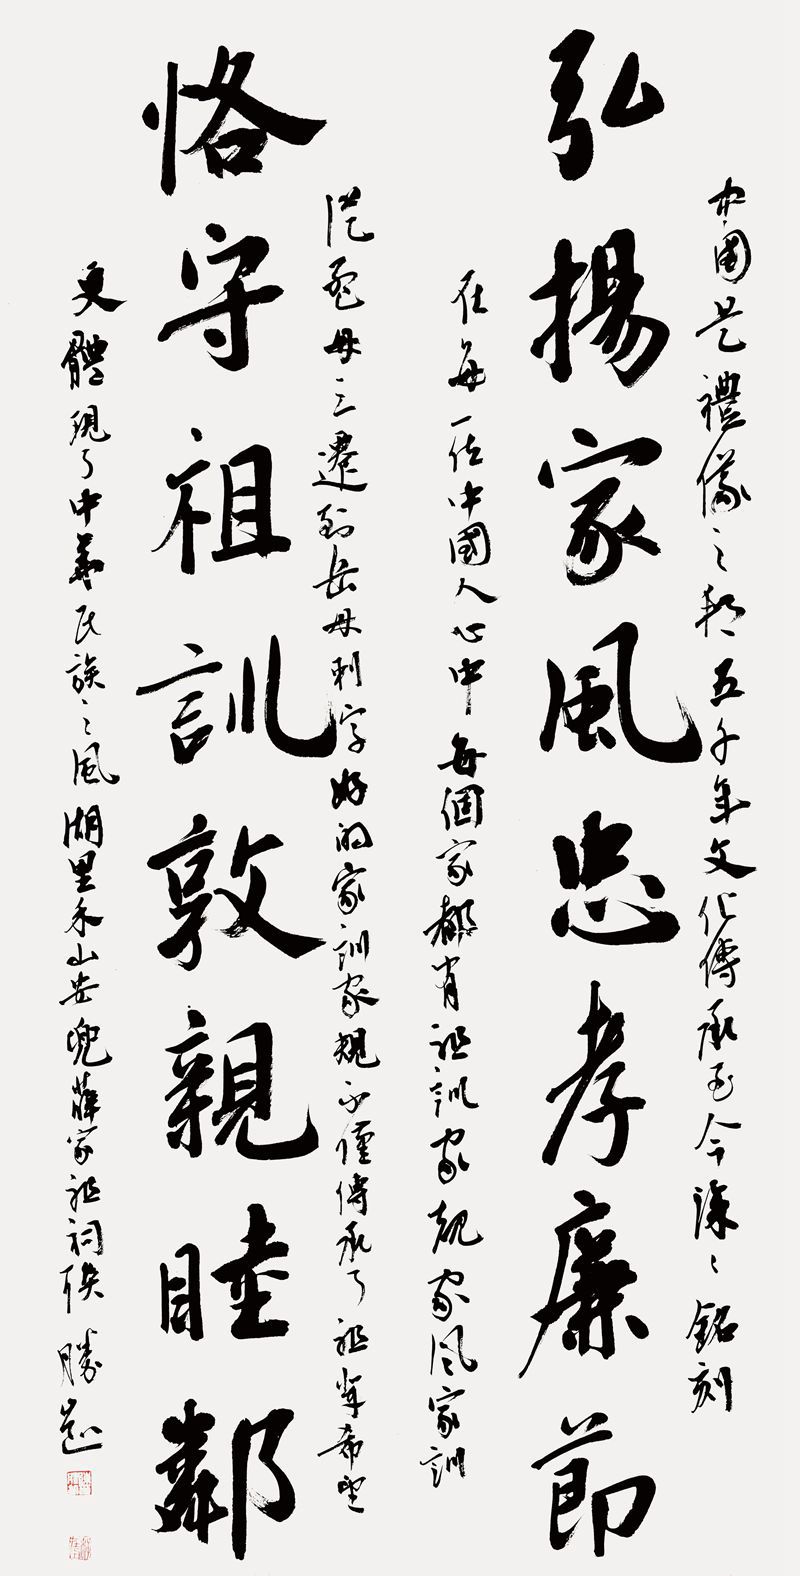 中國是禮儀之邦五千年文化傳承至今深〻銘刻
弘揚家風忠孝廉節
在每一位中國人心中每個家都有祖訓家規家風家訓
從孟母三遷到岳母刺字好的家訓家規不僅傳承了祖輩希望
恪守祖訓敦親睦鄰
更體現了中華民族之風湖里禾山安兜薛家祖祠聯勝